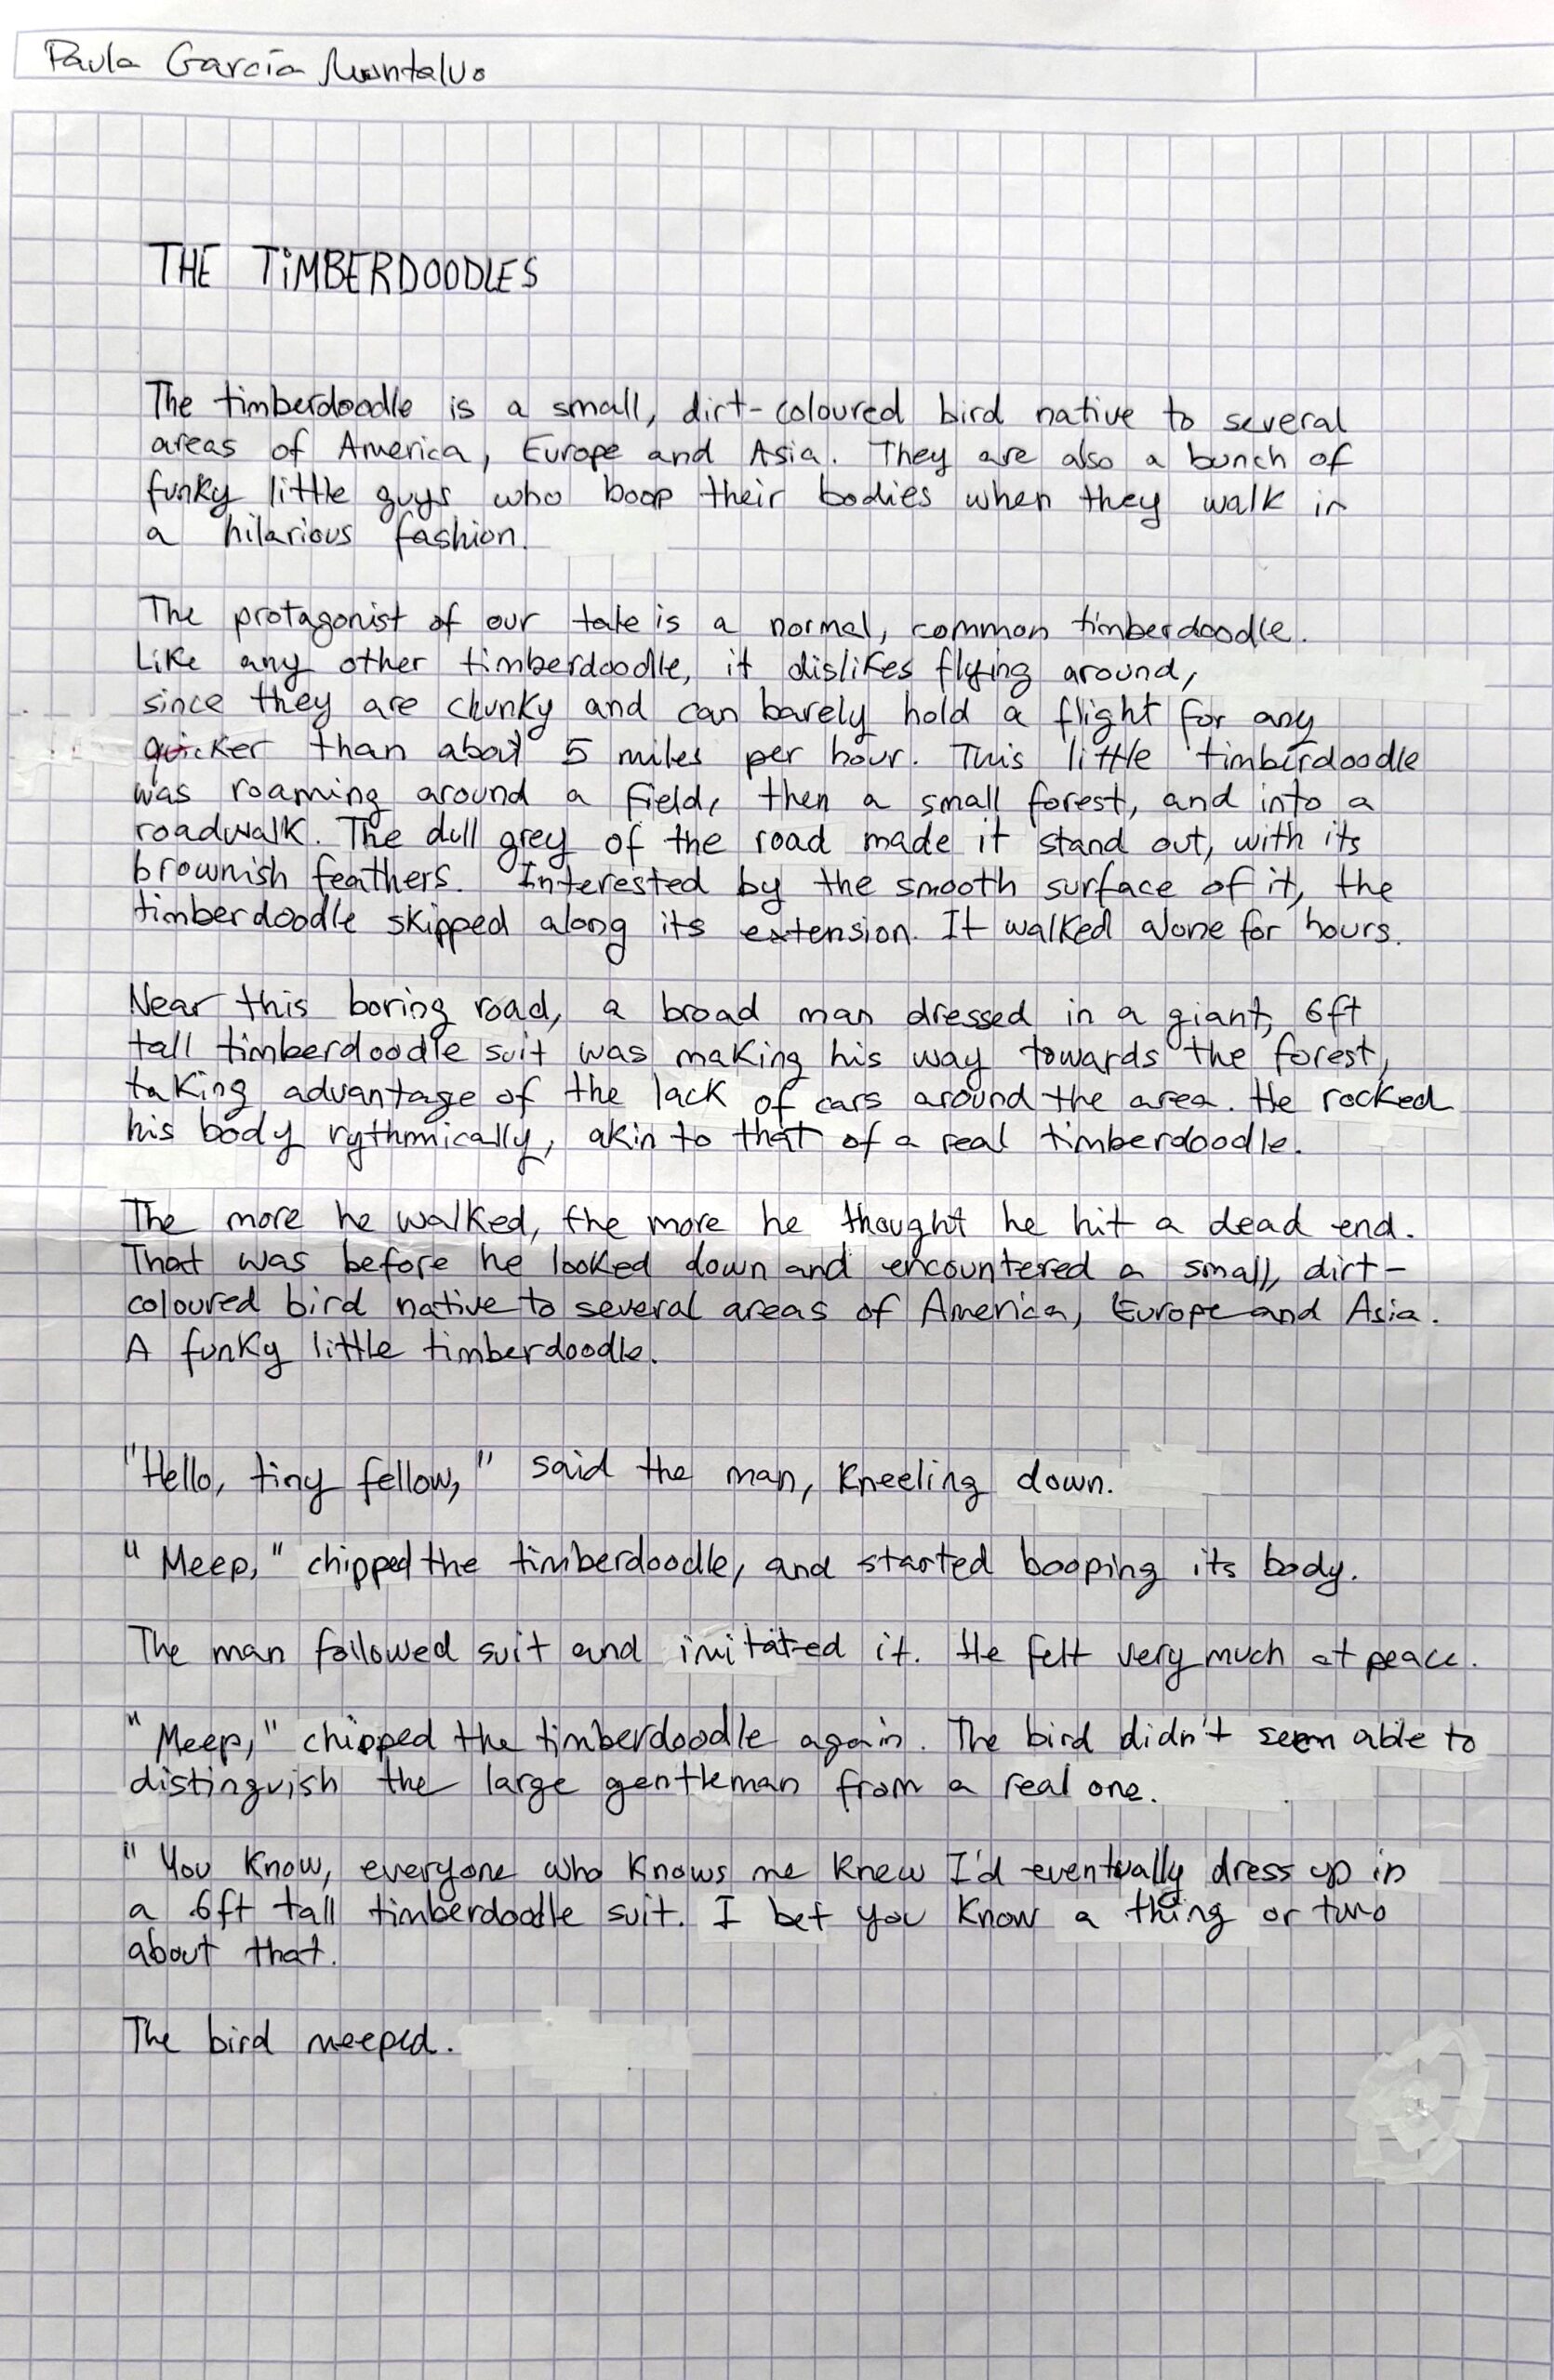 Paula García Montalvo
THE TiMBERDOODLES
The timberdoodle is a small, dirt-coloured bird native to several
areas of America, Europe and Asia. They are also a bunch of
funky little guys who boop their bodies when they walk in
a hilarious fashion.
The protagonist of our tale is a normal, common timberdoodle.
Like any other timberdoodle, it dislikes flying around,
since they are chunky and can barely hold a flight for any
quicker than about 5 miles per hour. This little timberdoodle
was roaming around a field, then a small forest, and into a
roadwalk. The dull grey of the road made it stand out, with its
brownish feathers. Interested by the smooth surface of it, the
timberdoodle skipped along its extension. It walked alone for hours.
Near this boring road, a broad man dressed in a giant, 6ft
tall timberdoodle suit was making his way towards the forest,
taking advantage of the lack of cars around the area. He rocked
his body rythmically, akin to that of a real timberdoodle.
The more he walked, the more he thought he hit a dead end.
That was before he looked down and encountered a small, dirt-
coloured bird native to several areas of America, Europe and Asia.
A funky little timberdoodle.
"Hello, tiny fellow," said the man, kneeling down.
"Meep," chipped the timberdoodle, and started booping its body.
The man followed suit and imitated it. He felt very much at peace.
"Meep," chipped the timberdoodle again. The bird didn't seem able to
distinguish the large gentleman from a real one.
"You know, everyone who knows me knew I'd eventually dress up in
a 6ft tall timberdoodle suit. I bet you know a thing or two
about that.
The bird meeped.